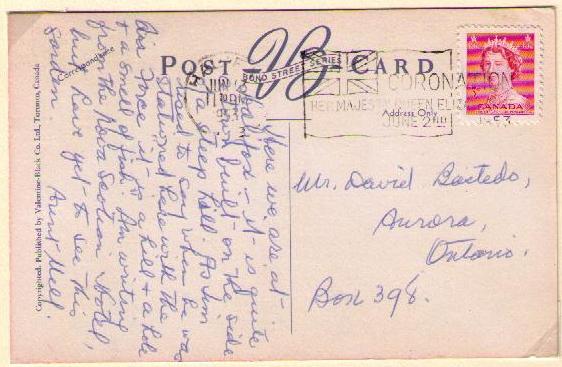 POST CARD
VB
BOND STREET SERIES
Correspondence
Address Only
Copyrighted. Published by Valentine-Black Co. Ltd., Toronto, Canada
CORONATION
HER MAJESTY QUEEN ELIZ
JUNE 2ND 1953
CANADA
JUN
1953
Here we are at
- it is quite
a town built on the side
of a steep hill. As Jim
used to say when he was
stationed here with the
Air Force it is a hill & a hole
& a smell of fish. Am writing
from the Nova Scotian Hotel,
but have yet to see this
London.
Aunt Nell.
Mr. David
Aurora,
Ontario.
Box 398.